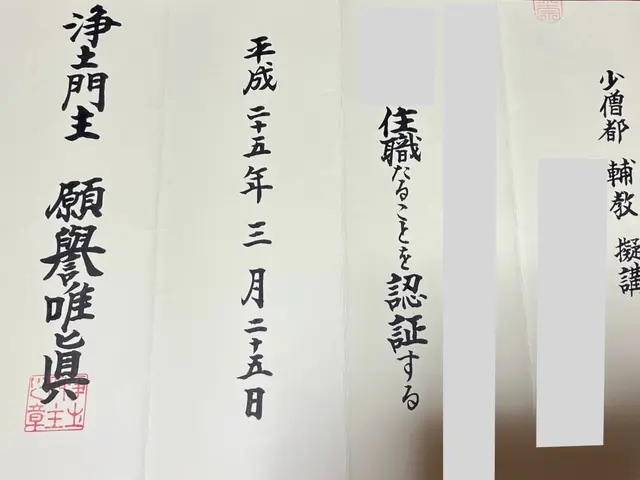 少僧都 輔教 擬講
住職たることを認証する
平成二十五年三月二十五日
浄土門主 願譽唯眞
浄土門主之章